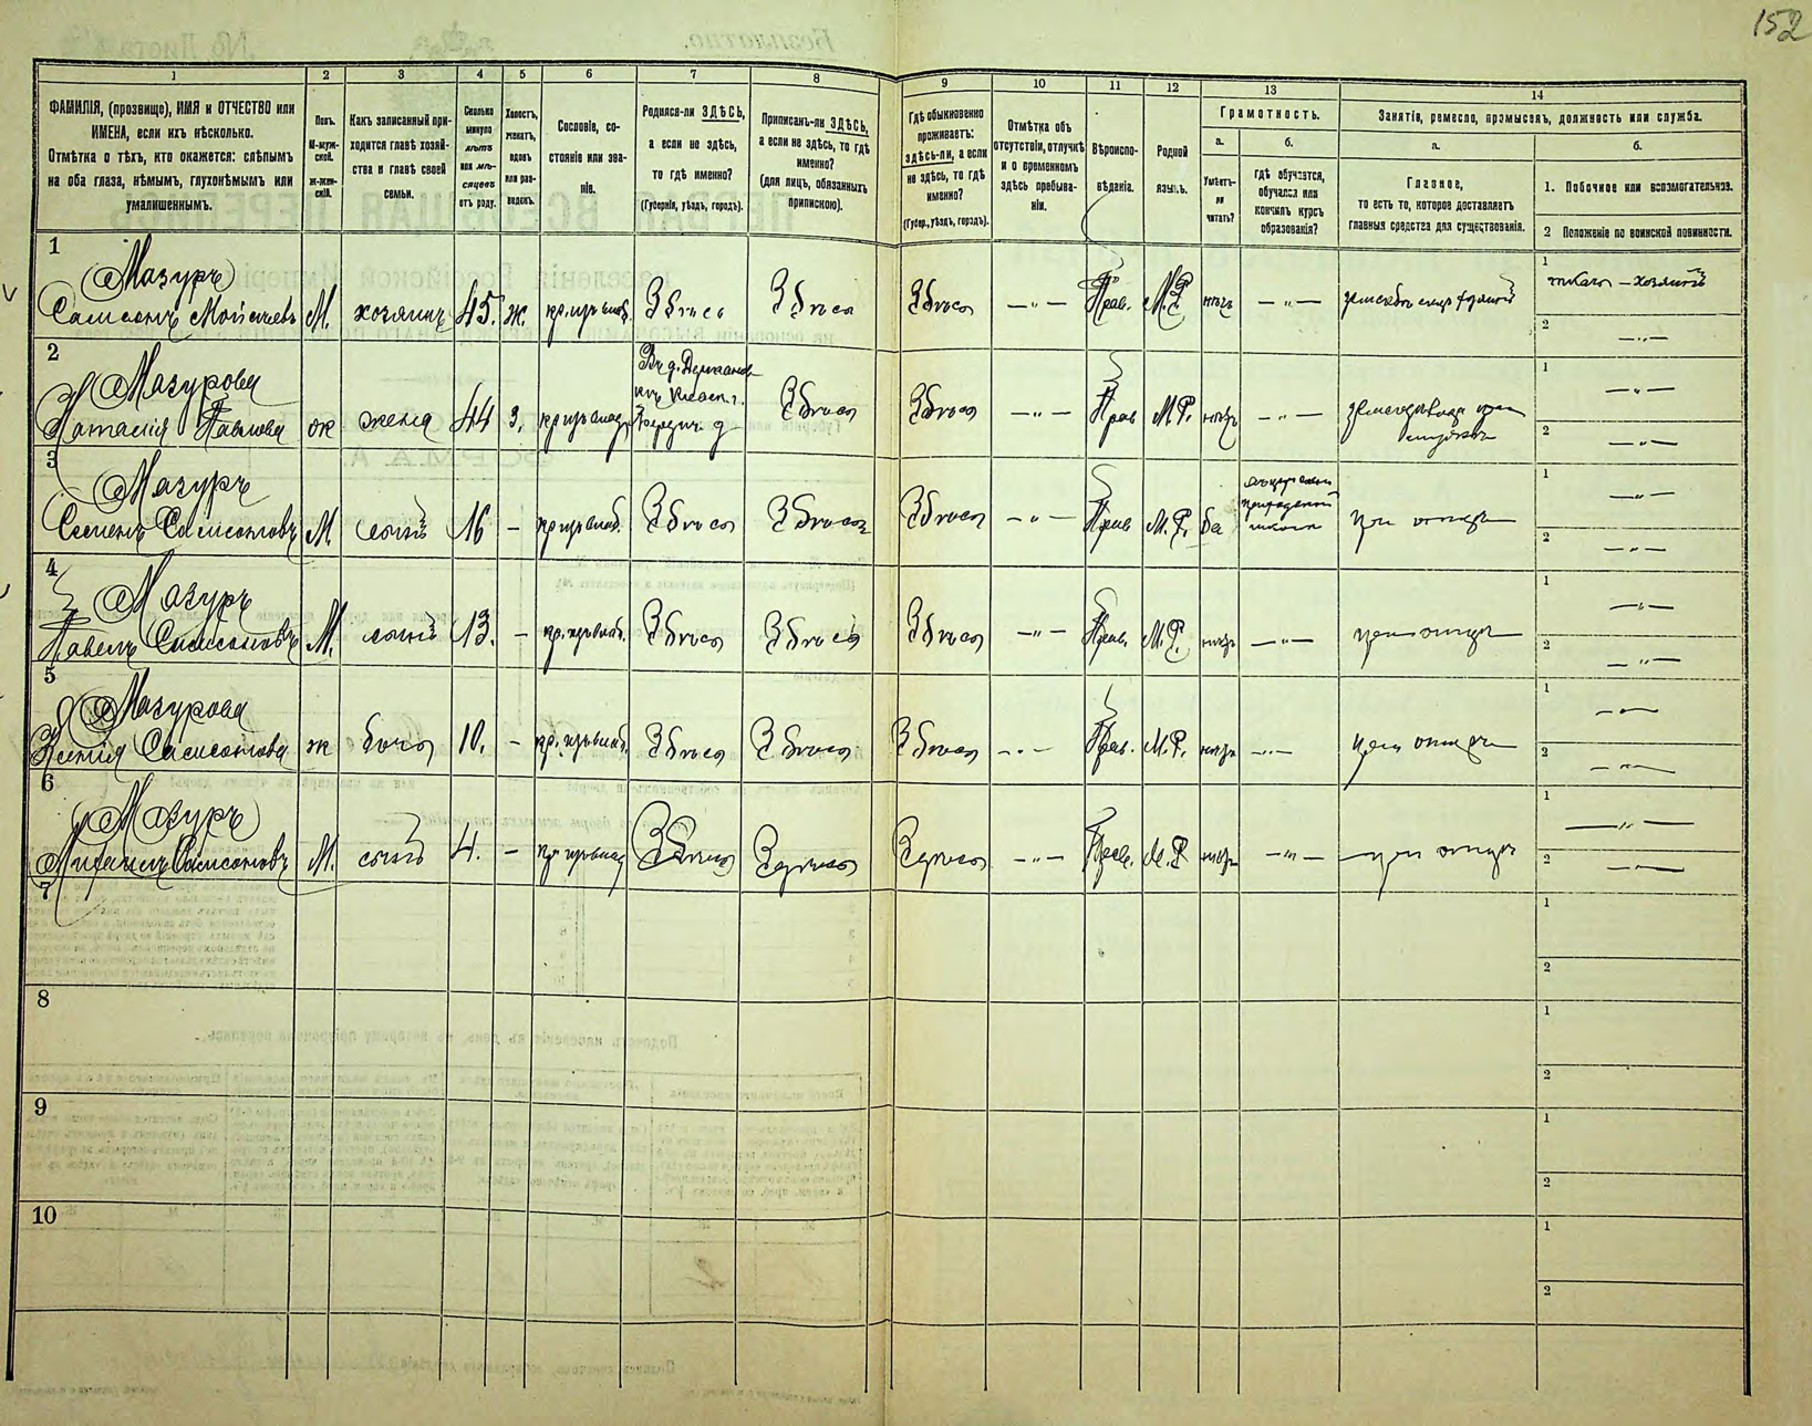 152
1
2
3
4
5
6
7
8
9
10
11
12
13
14
ФАМИЛІЯ, (прозвище), ИМЯ и ОТЧЕСТВО или
ИМЕНА, если ихъ нѣсколько.
Отмѣтка о тѣхъ, кто окажется: слѣпымъ
на оба глаза, нѣмымъ, глухонѣмымъ или
умалишеннымъ.
Полъ.
М-муж-
ской.
Ж-жен-
скій.
Какъ записанный при-
ходится главѣ хозяй-
ства и главѣ своей
семьи.
Сколько
минуло
лѣтъ
или мѣ-
сяцевъ
отъ роду.
Холостъ,
женатъ,
вдовъ
или раз-
веденъ.
Сословіе, со-
стояніе или зва-
ніе.
Родился-ли ЗДѢСЬ,
а если не здѣсь,
то гдѣ именно?
(Губернія, уѣздъ, городъ).
Приписанъ-ли ЗДѢСЬ,
а если не здѣсь, то гдѣ
именно?
(для лицъ, обязанныхъ
припискою).
Гдѣ обыкновенно
проживаетъ:
здѣсь-ли, а если
не здѣсь, то гдѣ
именно?
(Губер., уѣздъ, городъ).
Отмѣтка объ
отсутствіи, отлучкѣ
и о временномъ
здѣсь пребыва-
ніи.
Вѣроиспо-
вѣданіе.
Родной
языкъ.
Грамотность.
а.
Умѣетъ-
ли
читать?
б.
Гдѣ обучается,
обучался или
кончилъ курсъ
образованія?
Занятіе, ремесло, промыселъ, должность или служба.
а.
Главное,
то есть то, которое доставляетъ
главныя средства для существованія.
б.
1. Побочное или вспомогательное.
2 Положеніе по воинской повинности.
1
Мазуръ
Самсонъ Мойсеевъ М. хозяинъ 45. ж. Здѣсь Здѣсь Здѣсь — " — Прав. М.Р. нѣтъ — " —
1
2 — " —
2
Мазурова
Наталія Павлова ж жена 44 З. Здѣсь Здѣсь — " — Прав М.Р. нѣтъ — " —
1 — " —
2 — " —
3
Мазуръ
Семенъ Самсоновъ М. сынъ 16 — Здѣсь Здѣсь Здѣсь — " — Прав М.Р. да
школѣ
при отцѣ
1 — " —
2 — " —
4
Мазуръ
Павелъ Самсоновъ М. сынъ 13. — Здѣсь Здѣсь Здѣсь — " — Прав. М.Р. нѣтъ — " — при отцѣ
1 — " —
2 — " —
5
Мазурова
Ксенія Самсонова ж дочь 10. — Здѣсь Здѣсь Здѣсь — " — Прав. М.Р. нѣтъ — " — при отцѣ
1 — " —
2 — " —
6
Мазуръ
Михаилъ Самсоновъ М. сынъ 4. — Здѣсь Здѣсь Здѣсь — " — Прав. М.Р. нѣтъ — " — при отцѣ
1 — " —
2 — " —
7
1
2
8
1
2
9
1
2
10
1
2